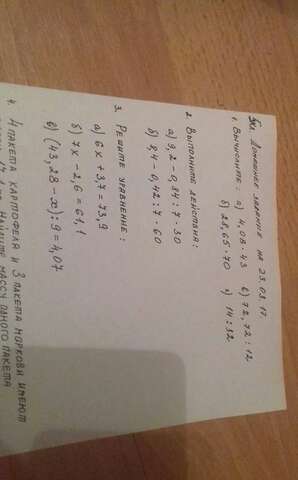 5кл. Домашнее задание на 23.03.17.
1. Вычислите: а) 4,08·43 в) 72,72:12
б) 28,65·70 г) 14:32
2. Выполните действия:
а) 9,2 – 0,84:7·30
б) 8,4 – 0,42:7·60
3. Решите уравнение:
а) 6x + 3,7 = 73,9
б) 7x – 2,6 = 61,1
в) (43,28 – x) : 9 = 4,07
4. 4 пакета картофеля и 3 пакета моркови имеют
Найдите массу одного пакета